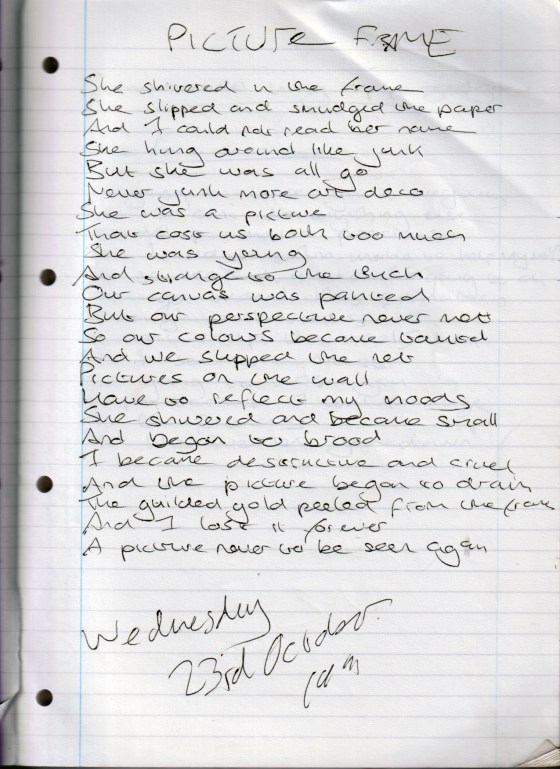 PICTURE FRAME
She shivered in the frame
She slipped and smudged the paper
And I could not read her name
She hung around like junk
But she was all go
Never junk more art deco
She was a picture
That cost us both too much
She was young
And strange to the touch
Our canvas was painted
But our perspective never met
So our colours became tainted
And we slipped the net
Pictures on the wall
Have to reflect my moods
She shivered and became small
And began to brood
I became destructive and cruel
And the picture began to drain
The guilded gold peeled from the frame
And I lost it forever
A picture never to be seen again
Wednesday
23rd October